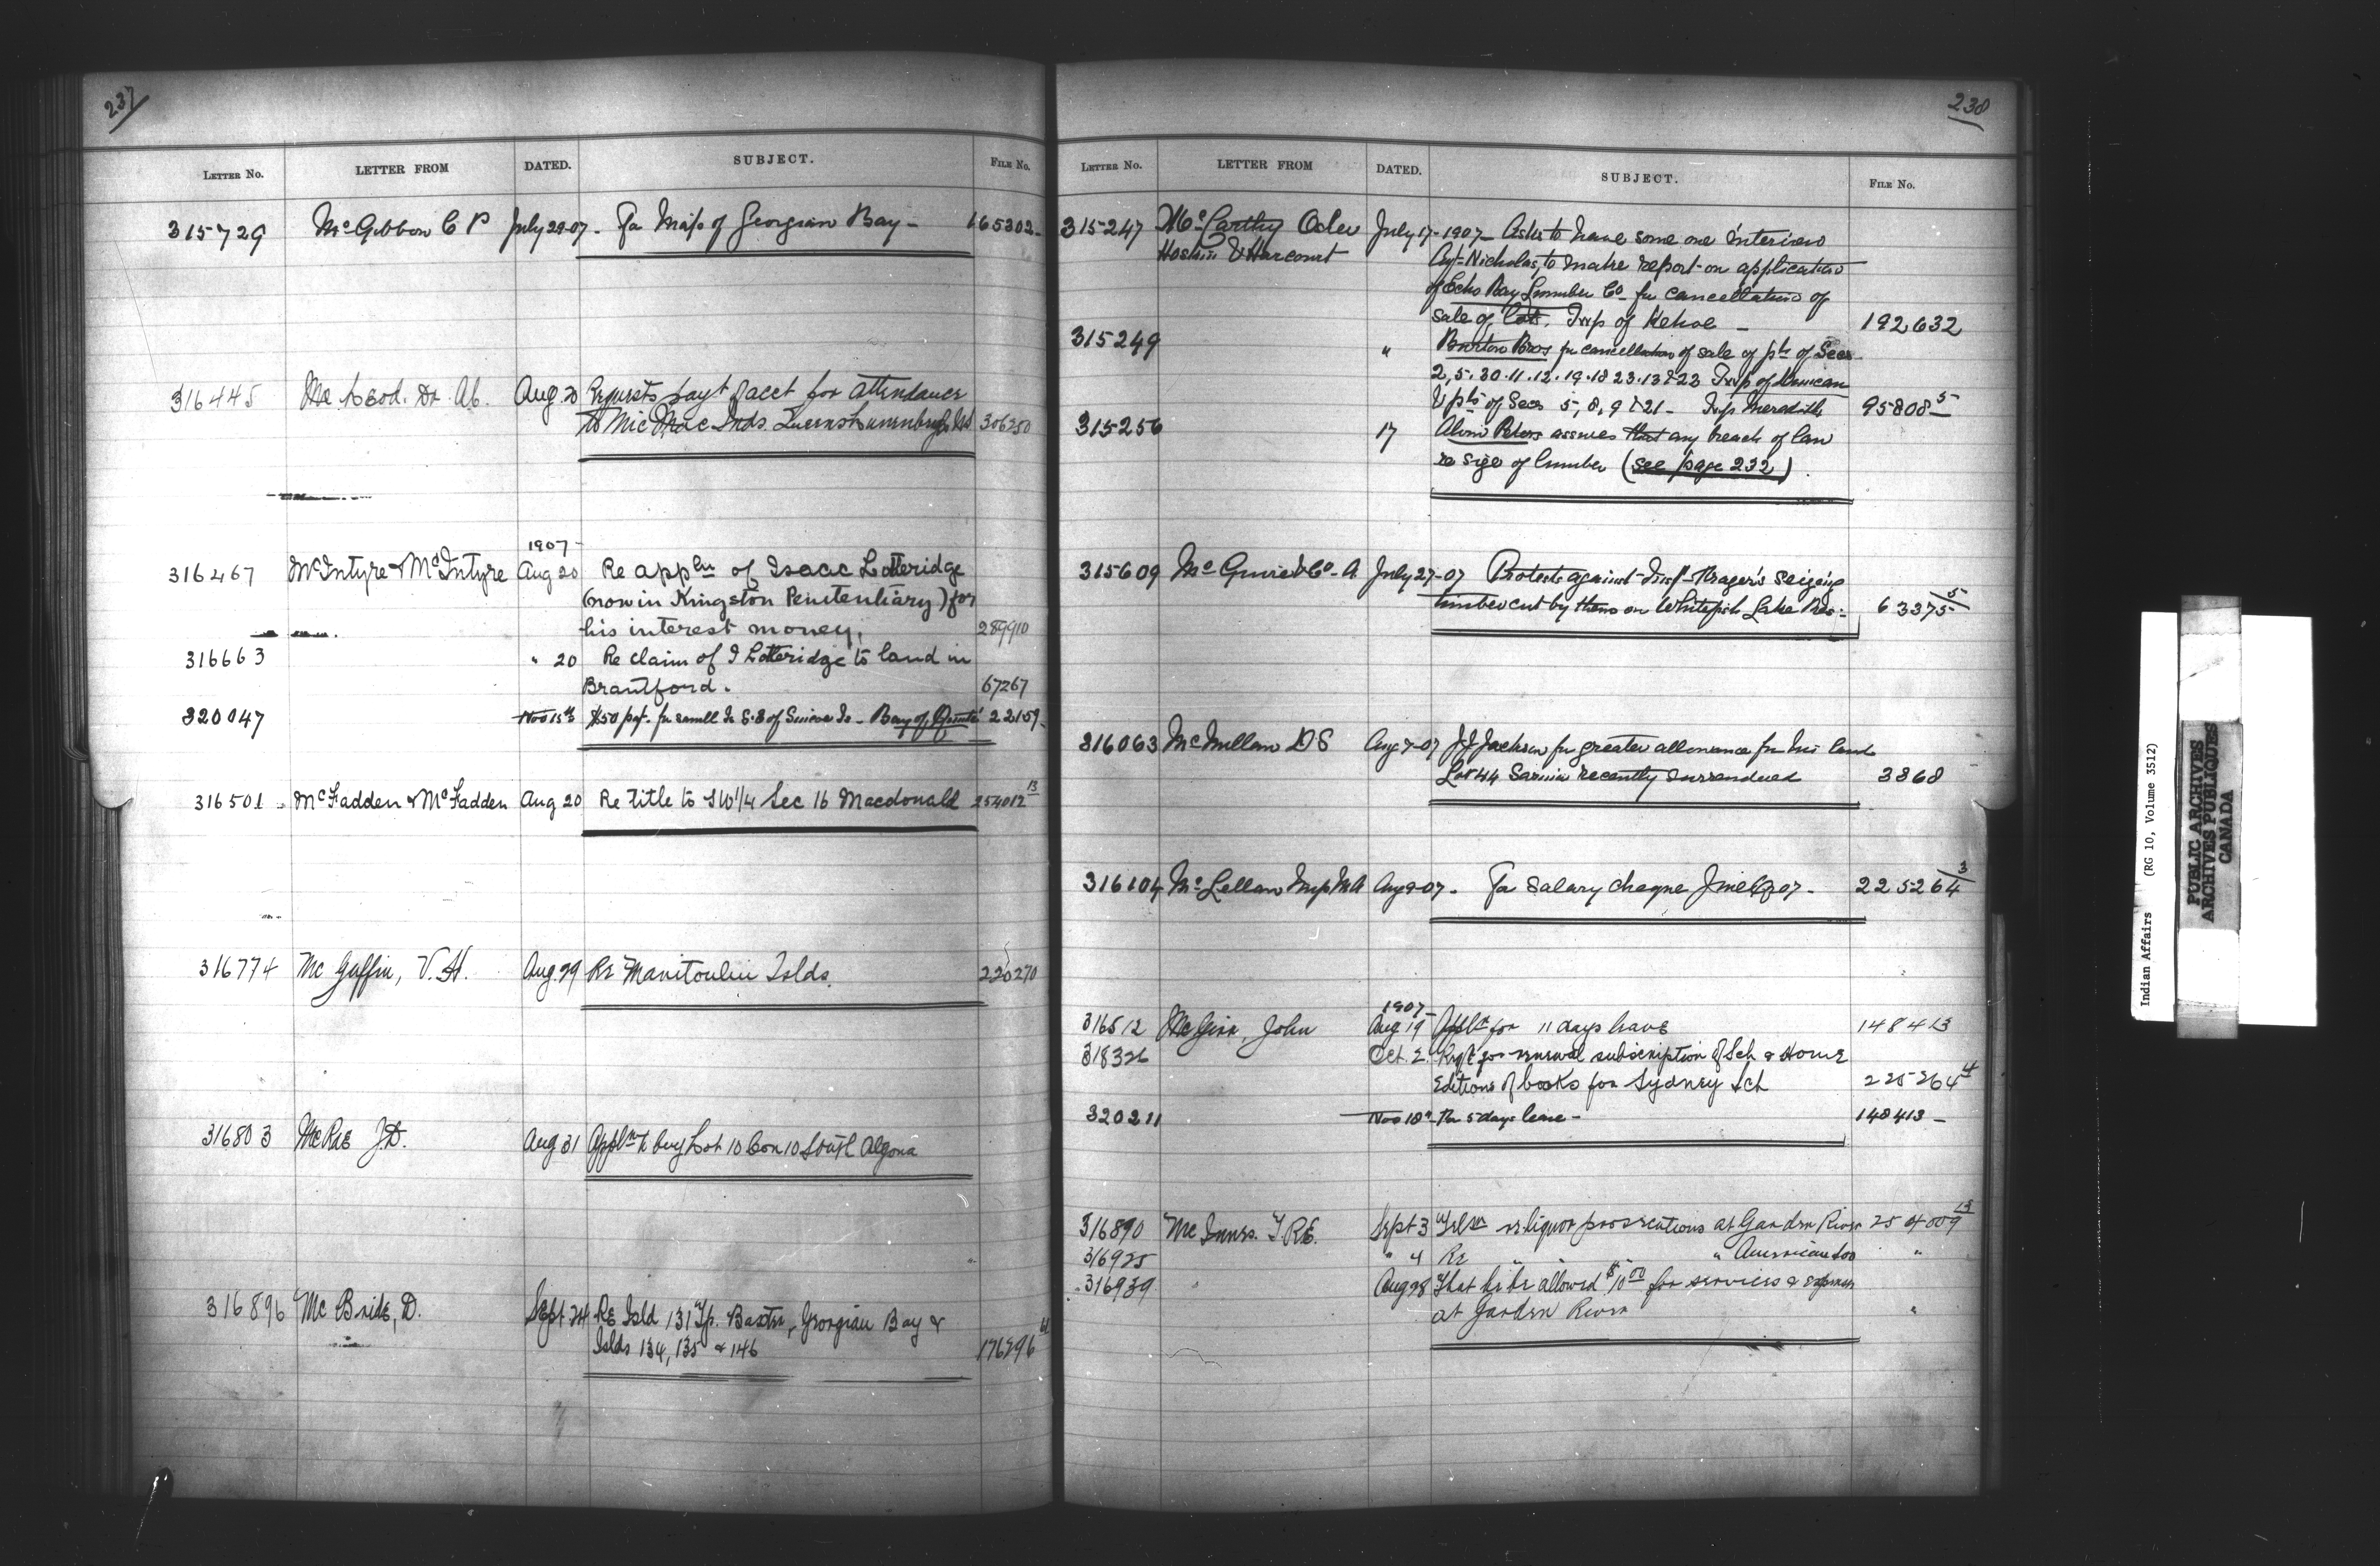 237
LETTER NO. LETTER FROM DATED. SUBJECT. FILE NO.
315729 McGibbon C P July 29-07. For Map of Georgian Bay - 165302-
316445 McLeod. Dr. Al. Aug. 20 Requests payt of acct for attendance
to Mic Mac Inds. 306250
1907-
316467 McIntyre & McIntyre Aug 20 Re appln of Isaac Lotteridge
(now in Kingston Penitentiary) for
his interest money. 289910
316663 " 20 Re claim of I Lotteridge to land in
Brantford. 67267
320047 Nov 15th $50 pat. for small Is S.E of Is - Bay of Quinte 22159-
316501 McFadden & McFadden Aug 20 Re title to SW1/4 Sec 16 Macdonald 254012 13
316774 Mc Guffin, V.H. Aug. 29 Re Manitoulin Islds. 220270
316803 McRae J.D. Aug 31 Appln to buy Lot 10 Con 10 South Algona
316896 Mc Bride, D. Sept 24 Re Isld 131 Tp. Baxter, Georgian Bay &
Islds 134, 135 & 146 176296
238
LETTER NO. LETTER FROM DATED. SUBJECT. FILE NO.
315247 McCarthy Osler July 17-1907- Asks to have some one interview
Hoskin & Harcourt Agt-Nicholas, to make report on application
of Echo Bay Lumber Co for cancellation of
sale of lots. Twp of Kehoe - 192632
315249 " Burton Bros for cancellation of sale of pts of Secs
2, 5. 30. 11. 12. 19. 18 23. 13 & 22 Twp of Duncan
& pts of Secs 5, 8, 9 & 21 - Twp Meredith 95808 5
315256 17 Peters assures that any breach of law
re size of lumber (see page 232).
315609 McGuire & Co. A. July 27-07 Protests against Insp- Hager's seizing
timber cut by them on Whitefish Lake Res:- 63375 5
316063 McMillan D S Aug 7-07 J J Jackson for greater allowance for his land
Lot 44 Sarnia recently surrendered 3868
316104 McLellan M A Aug 9-07. For salary cheque June 07- 225264 3
1907-
316512 McGinn, John Aug 19 Appln for 11 days leave 148413
318326 Oct. 2. Reqt for renewal subscription of Sch & Home
Editions of books for Sydney Sch 225264 4
320211 Nov 18th For 5 days leave - 148413 -
316890 McInnes. T.R.E. Sept 3 Telgm re liquor prosecutions at Garden River 254009 13
316925 " 4 Re " " " American Soo "
316939 " Aug 28 That he be allowed $10 00 for services & expenses
at Garden River "
Indian Affairs (RG 10, Volume 3512)
PUBLIC ARCHIVES
ARCHIVES PUBLIQUES
CANADA